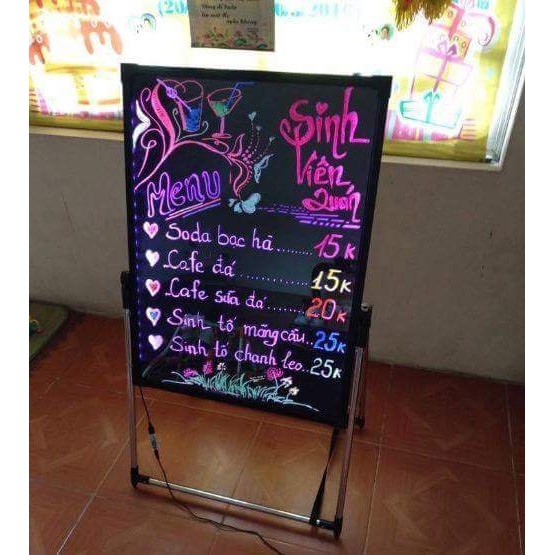 Sinh
Viên
Quán
Menu
Soda bạc hà......... 15K
Cafe đá............ 15K
Cafe sữa đá....... 20K
Sinh tố mãng cầu.. 25K
Sinh tố chanh leo.. 25K